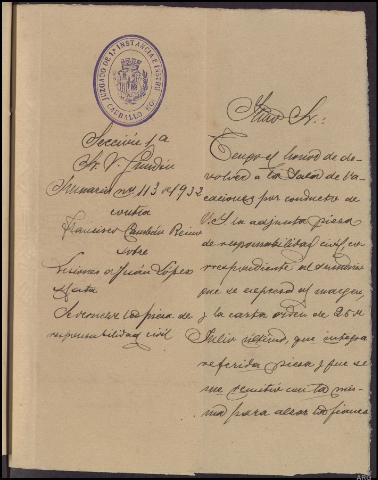 JUZGADO DE 1ª INSTANCIA E INSTRUCCION
CARBALLO
Sección 1ª
Sumario nº 113 de 1932
contra
Francisco
sobre
Lesiones a Juán López
Se remite la pieza de
responsabilidad civil
Iltmo Sr.:
Tengo el honor de de-
volver a la Sala de Va-
caciones por conducto de
V.I. la adjunta pieza
de responsabilidad civil co-
rrespondiente al sumario
que se expresa al margen,
y la carta orden de 25 de
Julio ultimo, que integra
referida pieza y que se
me remitió con la mis-
ma para alzar la fianza
ARG